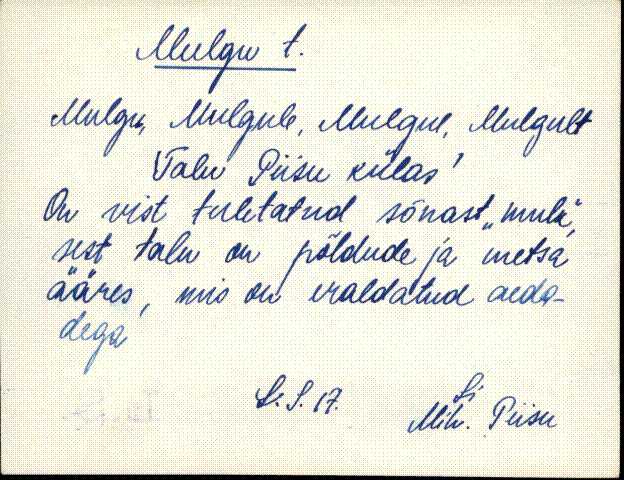 Mulgu t.
Mulgu, Mulgule, Mulgul, Mulgult
Talu Piisu külas
On vist tuletatud sõnast „mulk",
sest talu on põldude ja metsa
ääres, mis on eraldatud aeda-
dega
S. 17.
Mih. Piisu